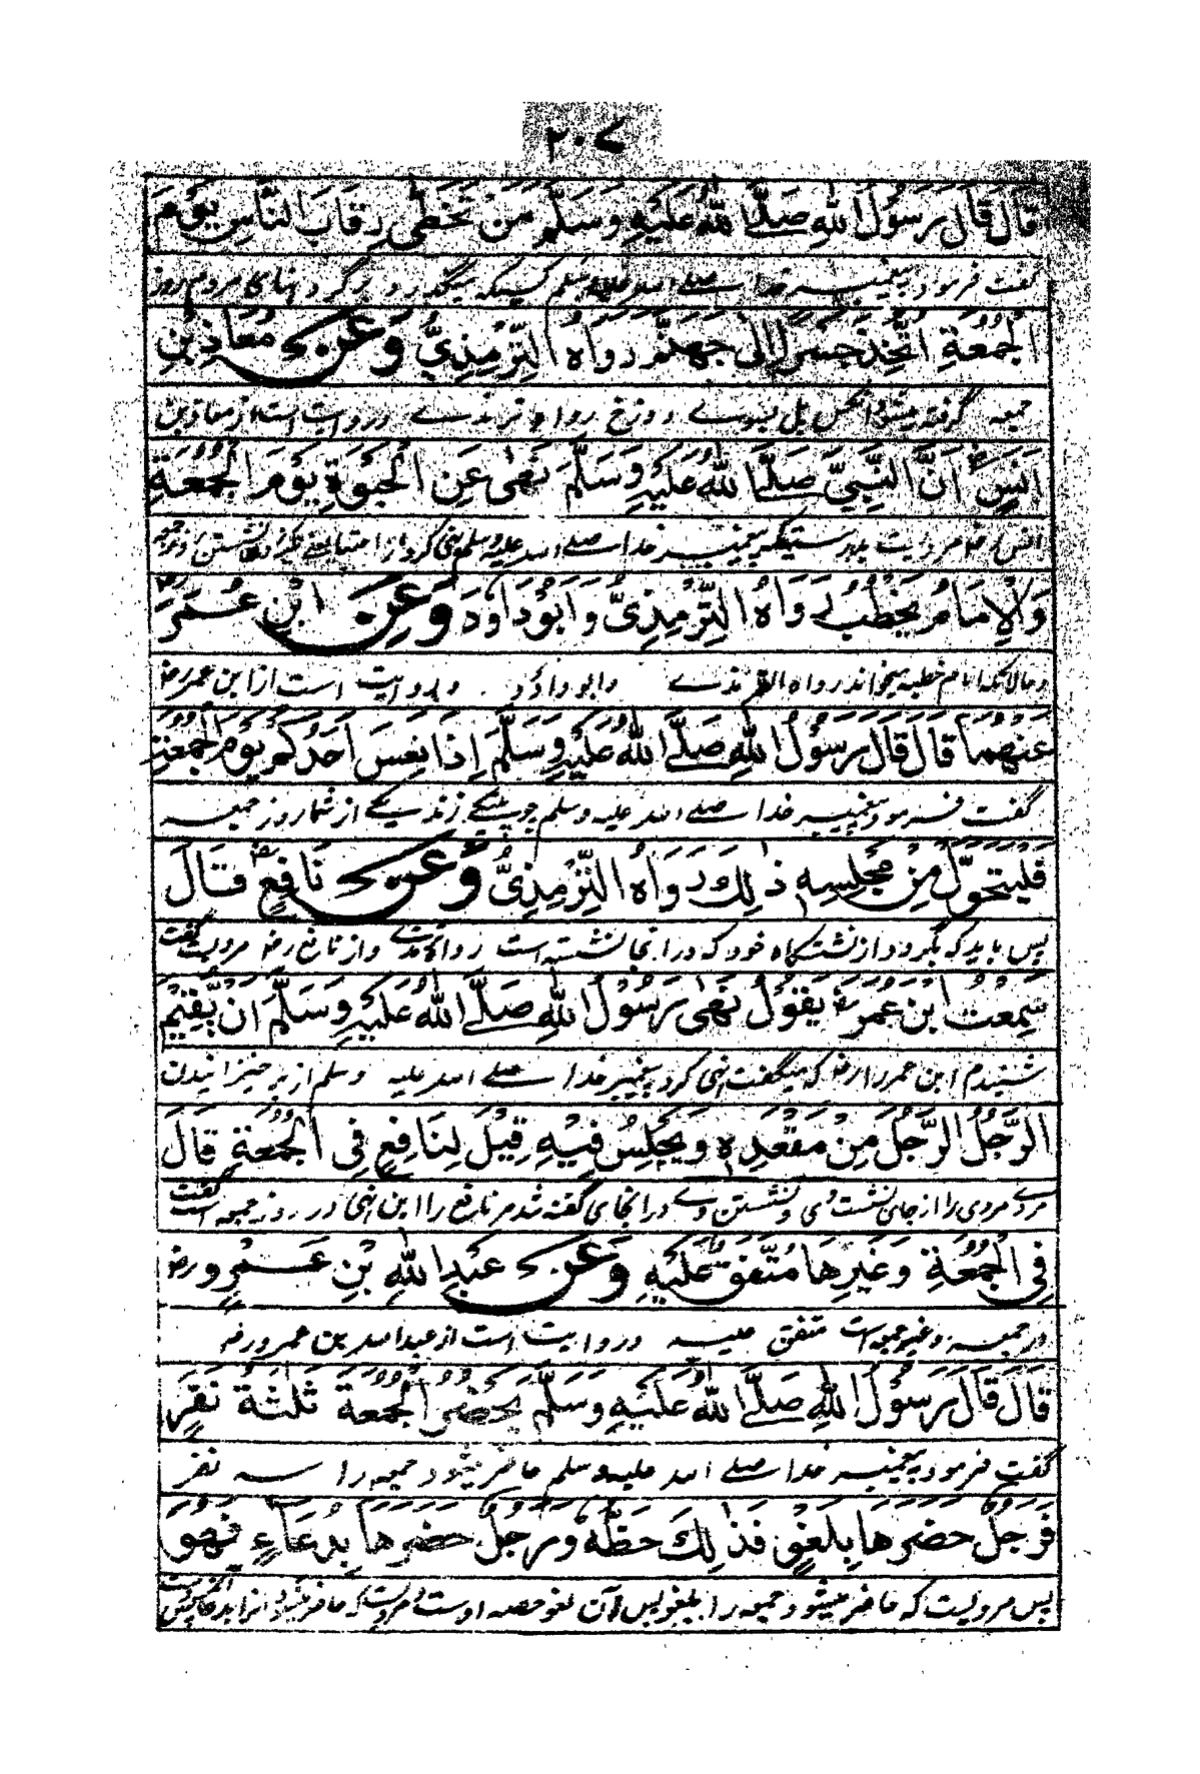 ۲۰۷
قَالَ قَالَ رَسُوْلُ اللّٰهِ صَلَّى اللّٰهُ عَلَيْهِ وَسَلَّمَ مَنْ تَخَطّٰى رِقَابَ النَّاسِ يَوْمَ
گفت فرمود پیغمبر خدا صلے اللہ علیہ وسلم کسیکہ میگذرد بر گردنهای مردم روز
الْجُمُعَةِ اتُّخِذَ جِسْرًا اِلٰى جَهَنَّمَ رَوَاهُ التِّرْمِذِيُّ وَعَنْ مُعَاذِ بْنِ
جمعہ گرفتہ میشود آنکس پل بسوے دوزخ رواہ ترمذے و روایت است از معاذ بن
اَنَسٍ اَنَّ النَّبِيَّ صَلَّى اللّٰهُ عَلَيْهِ وَسَلَّمَ نَهٰى عَنِ الْحُبْوَةِ يَوْمَ الْجُمُعَةِ
انس پیغمبر خدا صلے اللہ علیہ وسلم نہی کرد از احتبا
وَالْاِمَامُ يَخْطُبُ رَوَاهُ التِّرْمِذِيُّ وَاَبُوْ دَاوٗدَ وَعَنِ ابْنِ عُمَرَ
و حالانکہ امام خطبہ میخواند رواہ الترمذے و ابو داؤد و روایت است از ابن عمر رضہ
عَنْهُمَا قَالَ قَالَ رَسُوْلُ اللّٰهِ صَلَّى اللّٰهُ عَلَيْهِ وَسَلَّمَ اِذَا نَعِسَ اَحَدُكُمْ يَوْمَ الْجُمُعَةِ
گفت فرمود پیغمبر خدا صلے اللہ علیہ وسلم چو پینکے زند یکے از شما روز جمعہ
فَلْيَتَحَوَّلْ مِنْ مَجْلِسِهٖ ذٰلِكَ رَوَاهُ التِّرْمِذِيُّ وَعَنْ نَافِعٍ قَالَ
پس باید کہ بگردد از نشستگاہ خود کہ در انجا نشستہ است رواہ ترمذے و از نافع رضہ مرویست گفت
سَمِعْتُ ابْنَ عُمَرَ يَقُوْلُ نَهٰى رَسُوْلُ اللّٰهِ صَلَّى اللّٰهُ عَلَيْهِ وَسَلَّمَ اَنْ يُّقِيْمَ
شنیدم ابن عمر را رضہ کہ میگفت نہی کرد پیغمبر خدا صلے اللہ علیہ وسلم از برخیزانیدن
الرَّجُلُ الرَّجُلَ مِنْ مَقْعَدِهٖ وَيَجْلِسُ فِيْهِ قِيْلَ لِنَافِعٍ فِي الْجُمُعَةِ قَالَ
مردے مردی را از جای نشست وی و نشستن وے در انجای گفتہ شد مر نافع را این نہی در روز جمعہ است گفت
فِي الْجُمُعَةِ وَغَيْرِهَا مُتَّفَقٌ عَلَيْهِ وَعَنْ عَبْدِ اللّٰهِ بْنِ عَمْرٍو رضہ
در جمعہ و غیر جمعہ است متفق علیہ و روایت است از عبد اللہ بن عمرو رضہ
قَالَ قَالَ رَسُوْلُ اللّٰهِ صَلَّى اللّٰهُ عَلَيْهِ وَسَلَّمَ يَحْضُرُ الْجُمُعَةَ ثَلٰثَةُ نَفَرٍ
گفت فرمود پیغمبر خدا صلے اللہ علیہ وسلم حاضر میشود جمعہ را سہ نفر
فَرَجُلٌ حَضَرَهَا بِلَغْوٍ فَذٰلِكَ حَظُّهٗ وَرَجُلٌ حَضَرَهَا بِدُعَاءٍ فَهُوَ
پس مردیست کہ حاضر میشود جمعہ را بلغو پس آن لغو حصہ اوست و مردیست کہ حاضر میشود